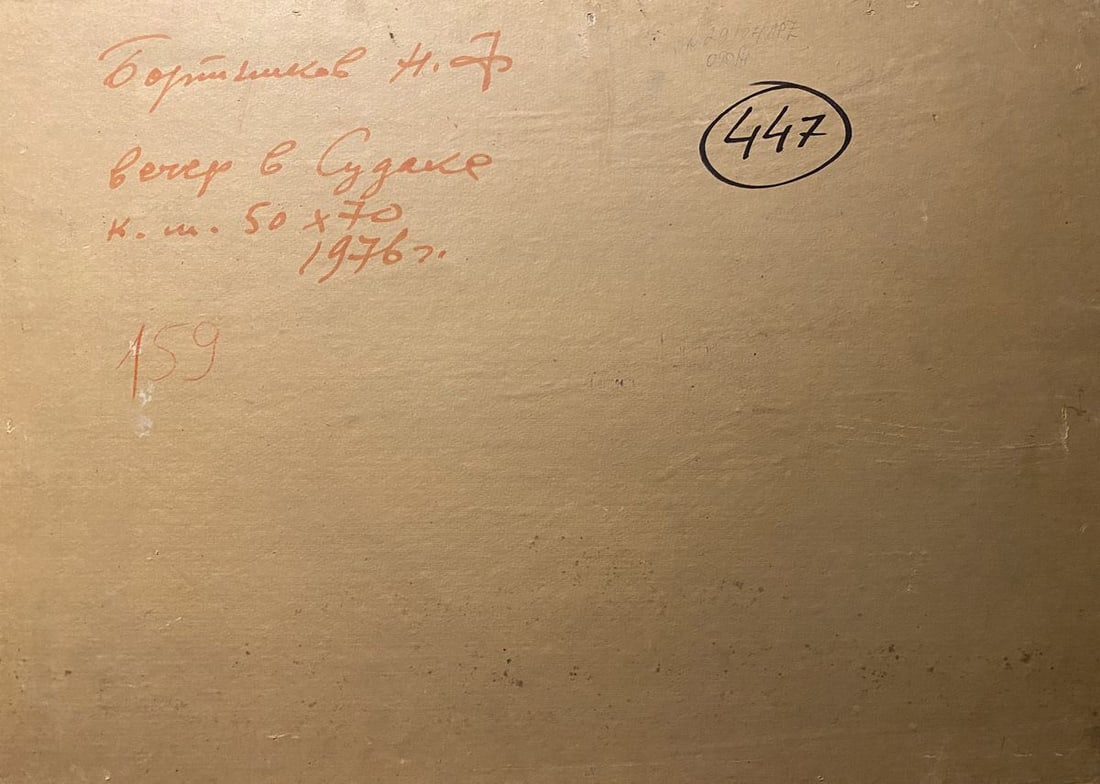 Бортников Н.Ф
447
вечер в Судаке
к. м. 50 х 70
1976 г.
159